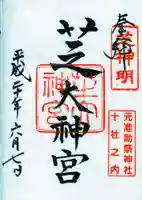 奉拝
芝神明
芝大神宮
元准勅祭神社
十社之内
平成二十年六月七日